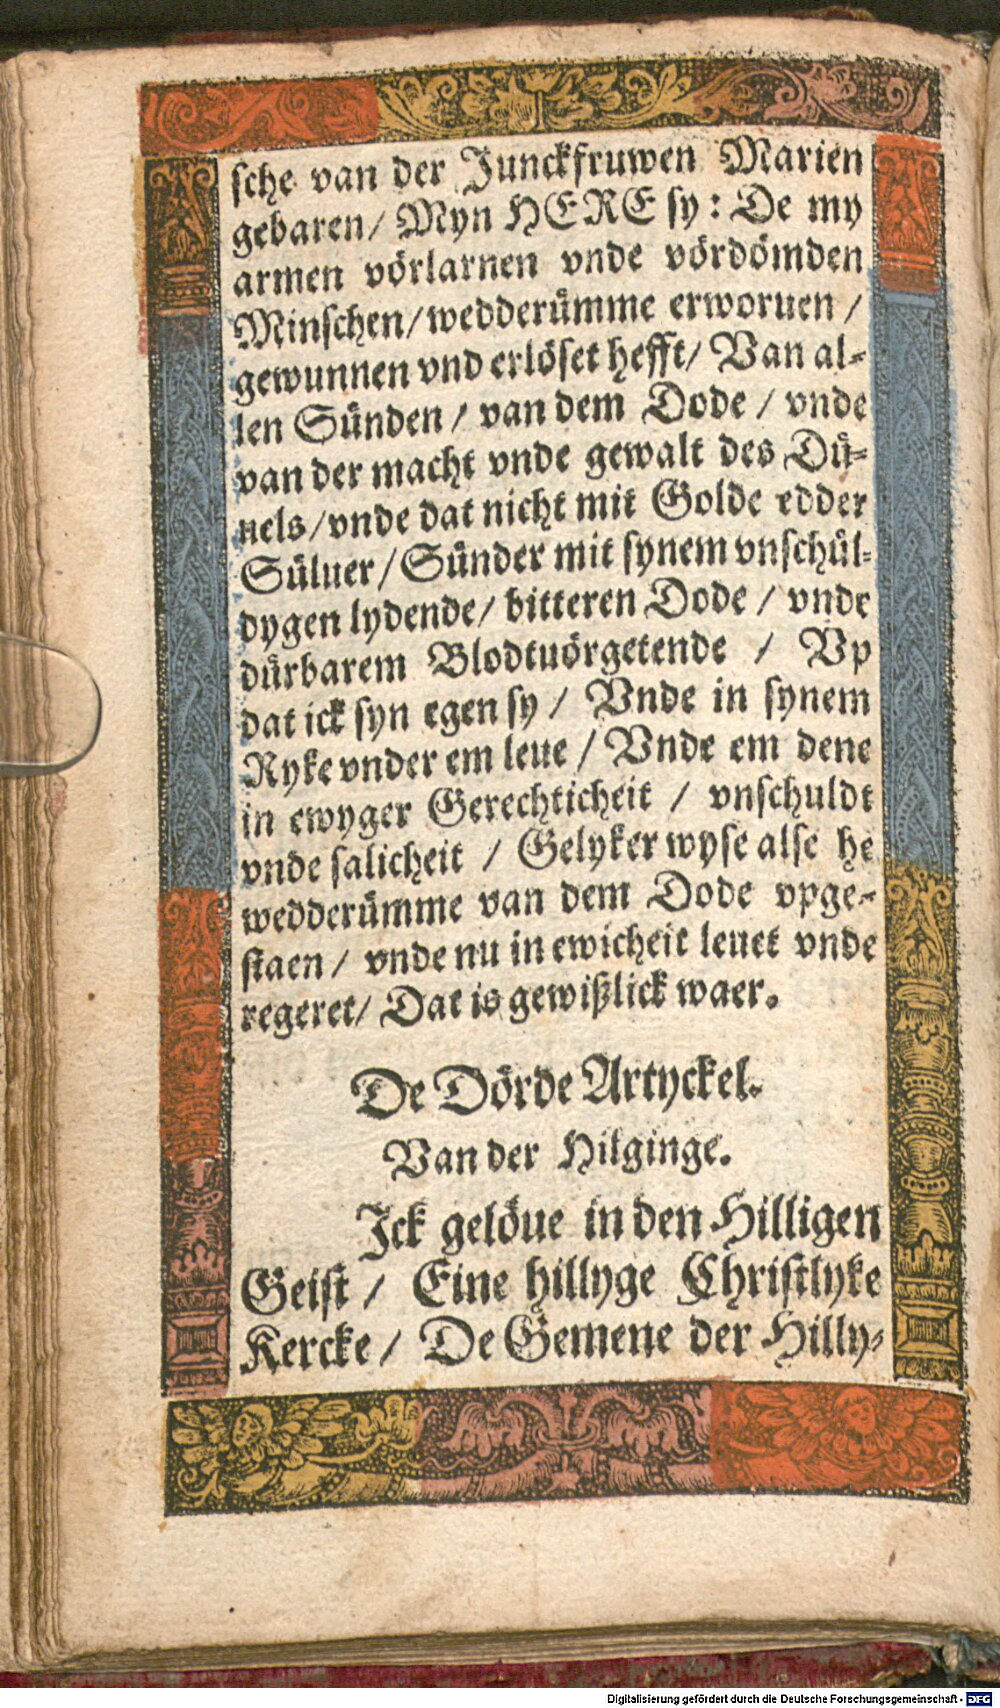 sche van der Junckfruwen Marien
gebaren/ Myn HERE sy: De my
armen vörlarnen vnde vördömden
Minschen/wedderümme erworuen /
gewunnen vnd erlöset hefft/ Van al-
len Sünden / van dem Dode / vnde
van der macht vnde gewalt des Dü-
uels/vnde dat nicht mit Golde edder
Süluer/Sünder mit synem vnschül-
dygen lydende/ bitteren Dode / vnde
dürbarem Blodtuörgetende / Vp
dat ick syn egen sy / Vnde in synem
Ryke vnder em leue / Vnde em dene
in ewyger Gerechticheit / vnschuldt
vnde salicheit / Gelyker wyse alse he
wedderümme van dem Dode vpge-
staen / vnde nu in ewicheit leuet vnde
regeret/ Dat is gewißlick waer.
De Dörde Artyckel.
Van der Hilginge.
Ick gelöue in den Hilligen
Geist / Eine hillyge Christlyke
Kercke / De Gemene der Hilly-
Digitalisierung gefördert durch die Deutsche Forschungsgemeinschaft - DFG